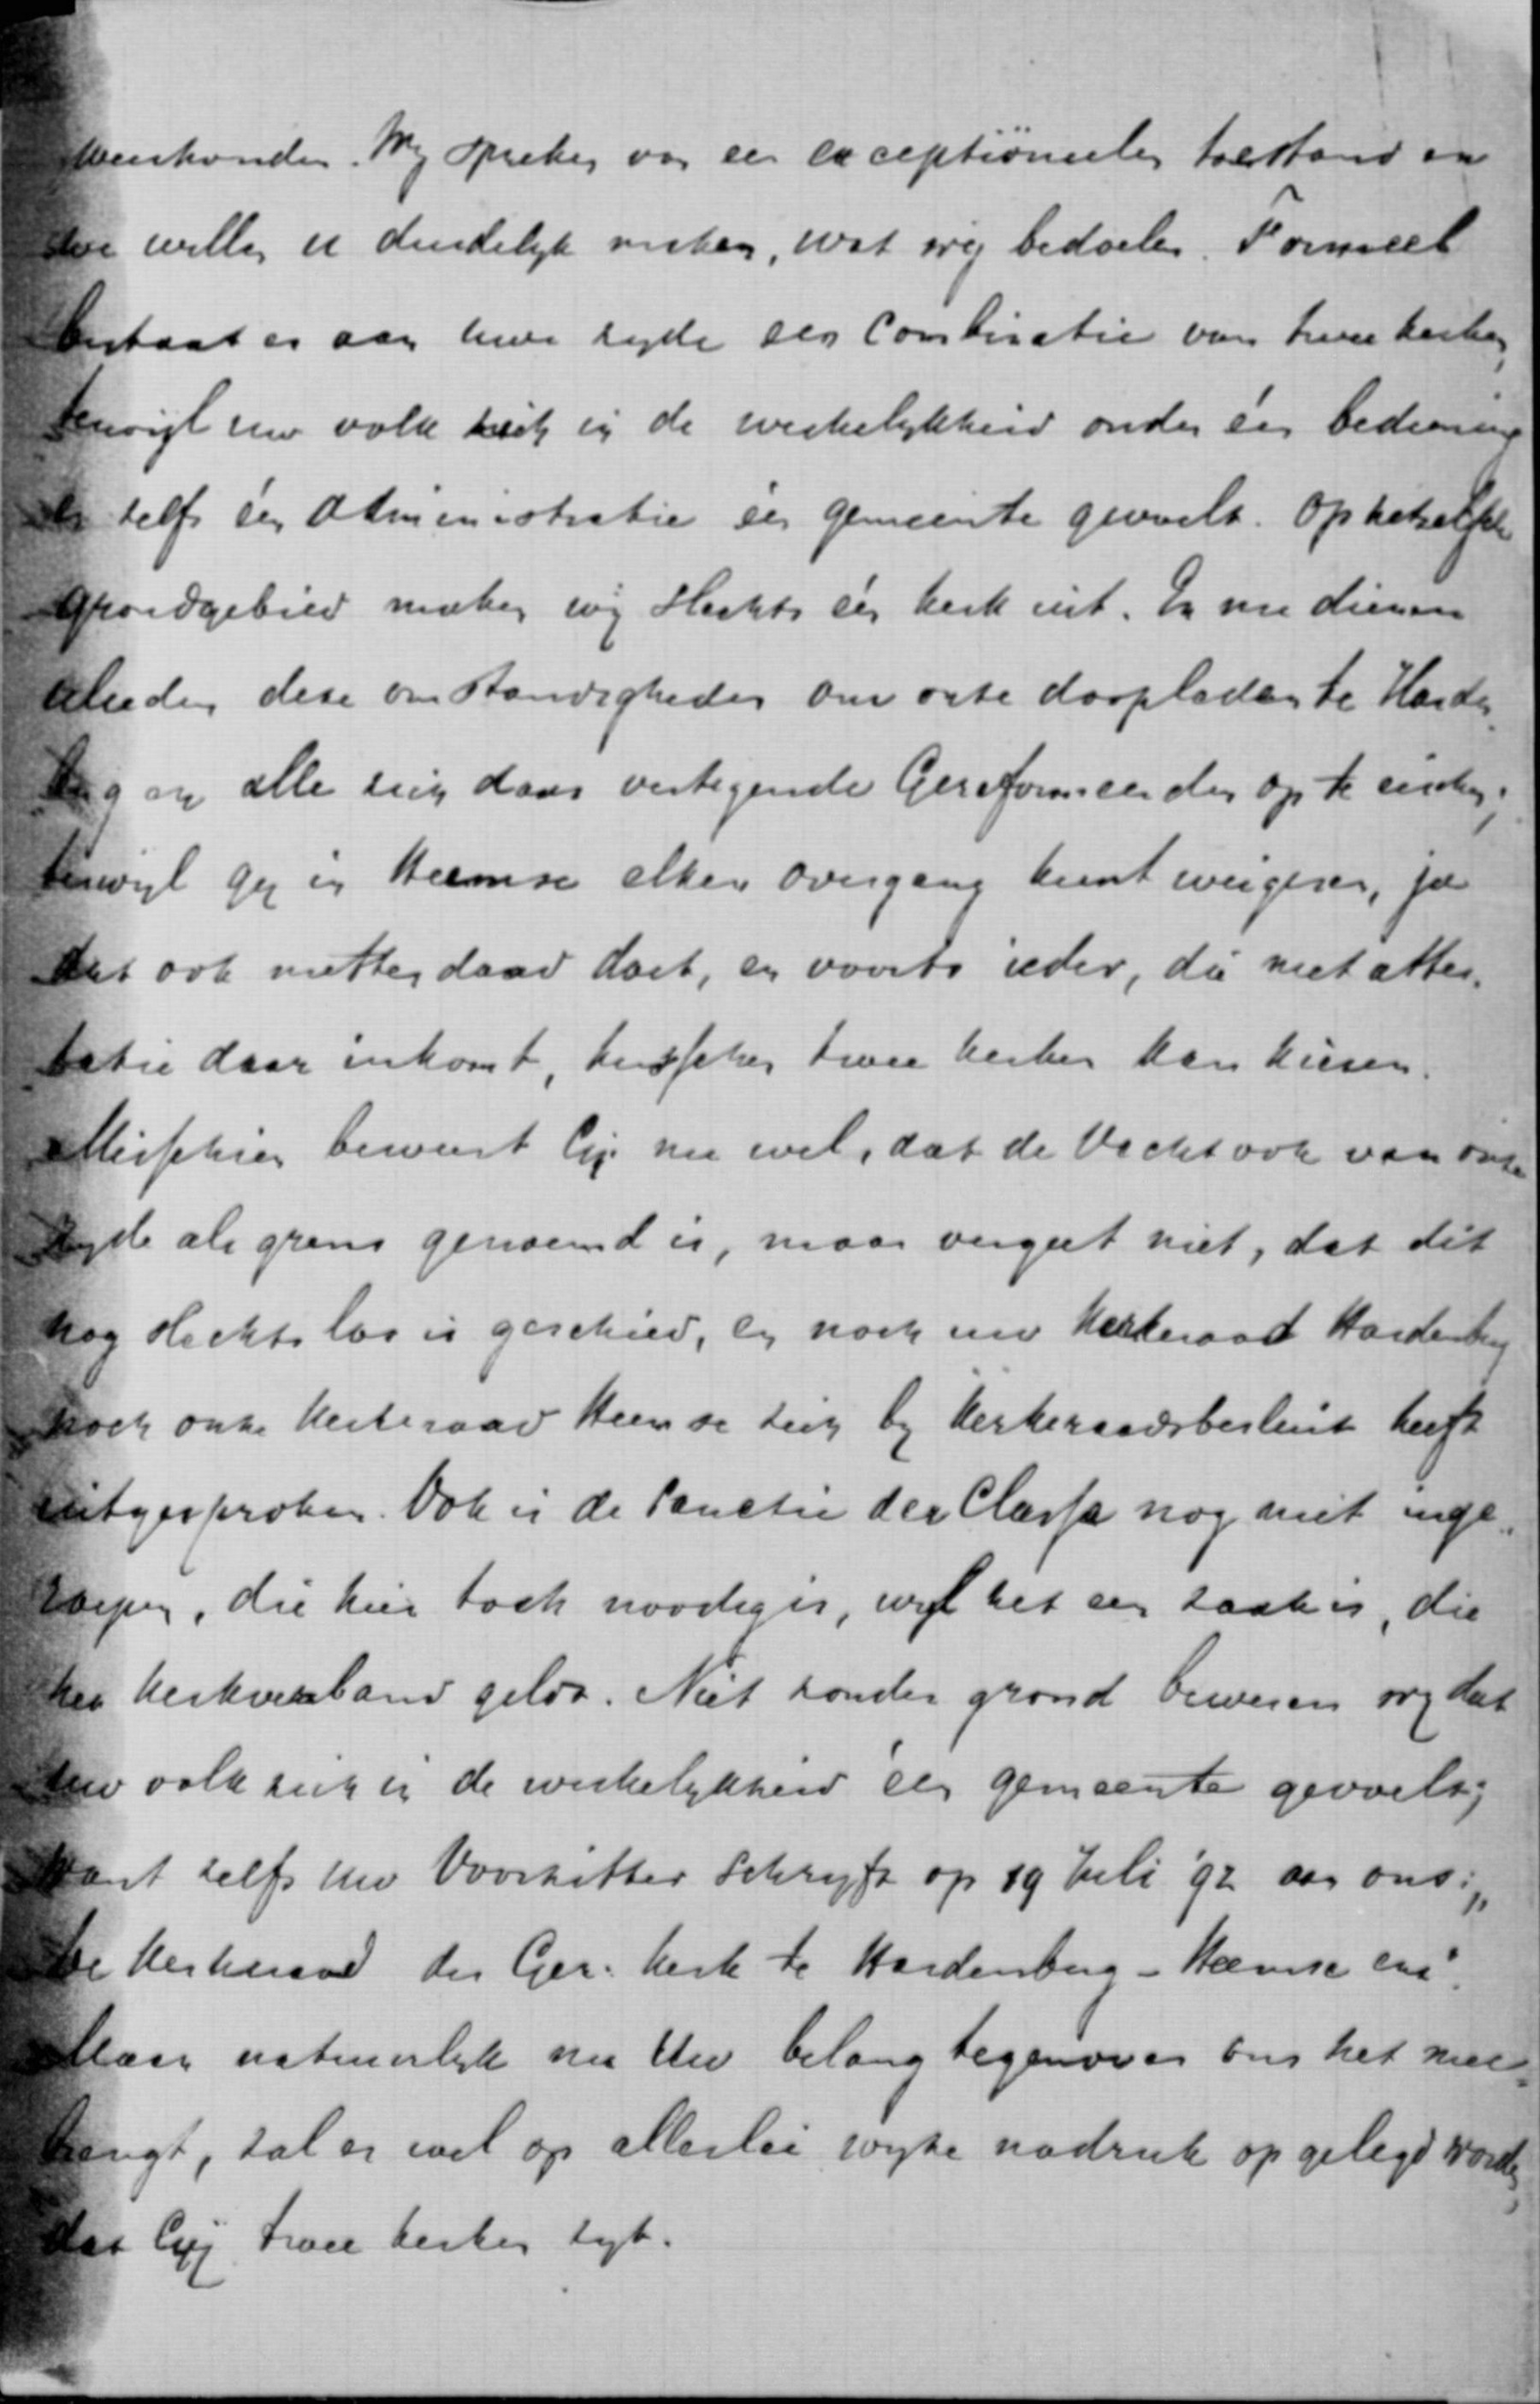 Wij spreken van een exceptioneelen toestand en
we willen u duidelyk maken, wat wij bedoelen. Formeel
bestaat er aan uwe zyde een Combinatie van twee kerken,
terwijl uw volk zich in de werkelykheid onder één bediening
en zelfs één administratie één gemeente gevoelt. Op hetzelfde
grondgebied maken wij slechts één kerk uit. En nu dienen
u beiden deze omstandigheden om onze doopleden te Harden
berg en alle zich daar vestigende Gereformeerden op te eischen;
terwijl gij in Heemse elken overgang kunt weigeren, ja
dat ook metterdaad doet, en voorts ieder, die met attes-
tatie daar inkomt, tusschen twee kerken kan kiezen.
Misschien beweert Gij nu wel, dat de Vecht ook van onze
zyde als grens genoemd is, maar vergeet niet, dat dit
nog slechts los is geschied, en noch uw Kerkeraad Hardenberg
noch onze Kerkeraad Heemse zich by Kerkeraadsbesluit heeft
uitgesproken. Ook is de Sanctie der Classe nog niet inge-
roepen, die hier toch noodig is, wyl het een zaak is, die
het Kerkverband geldt. Niet zonder grond beweren wy dat
uw volk zich in de werkelykheid één gemeente gevoelt;
want zelfs uw Voorzitter schryft op 19 Juli '92 aan ons: „
De Kerkeraad der Ger. Kerk te Hardenberg - Heemse enz".
Maar natuurlyk nu Uw belang tegenover ons het mee-
brengt, zal er wel op allerlei wyze nadruk op gelegd worden,
dat Gij twee kerken zyt.